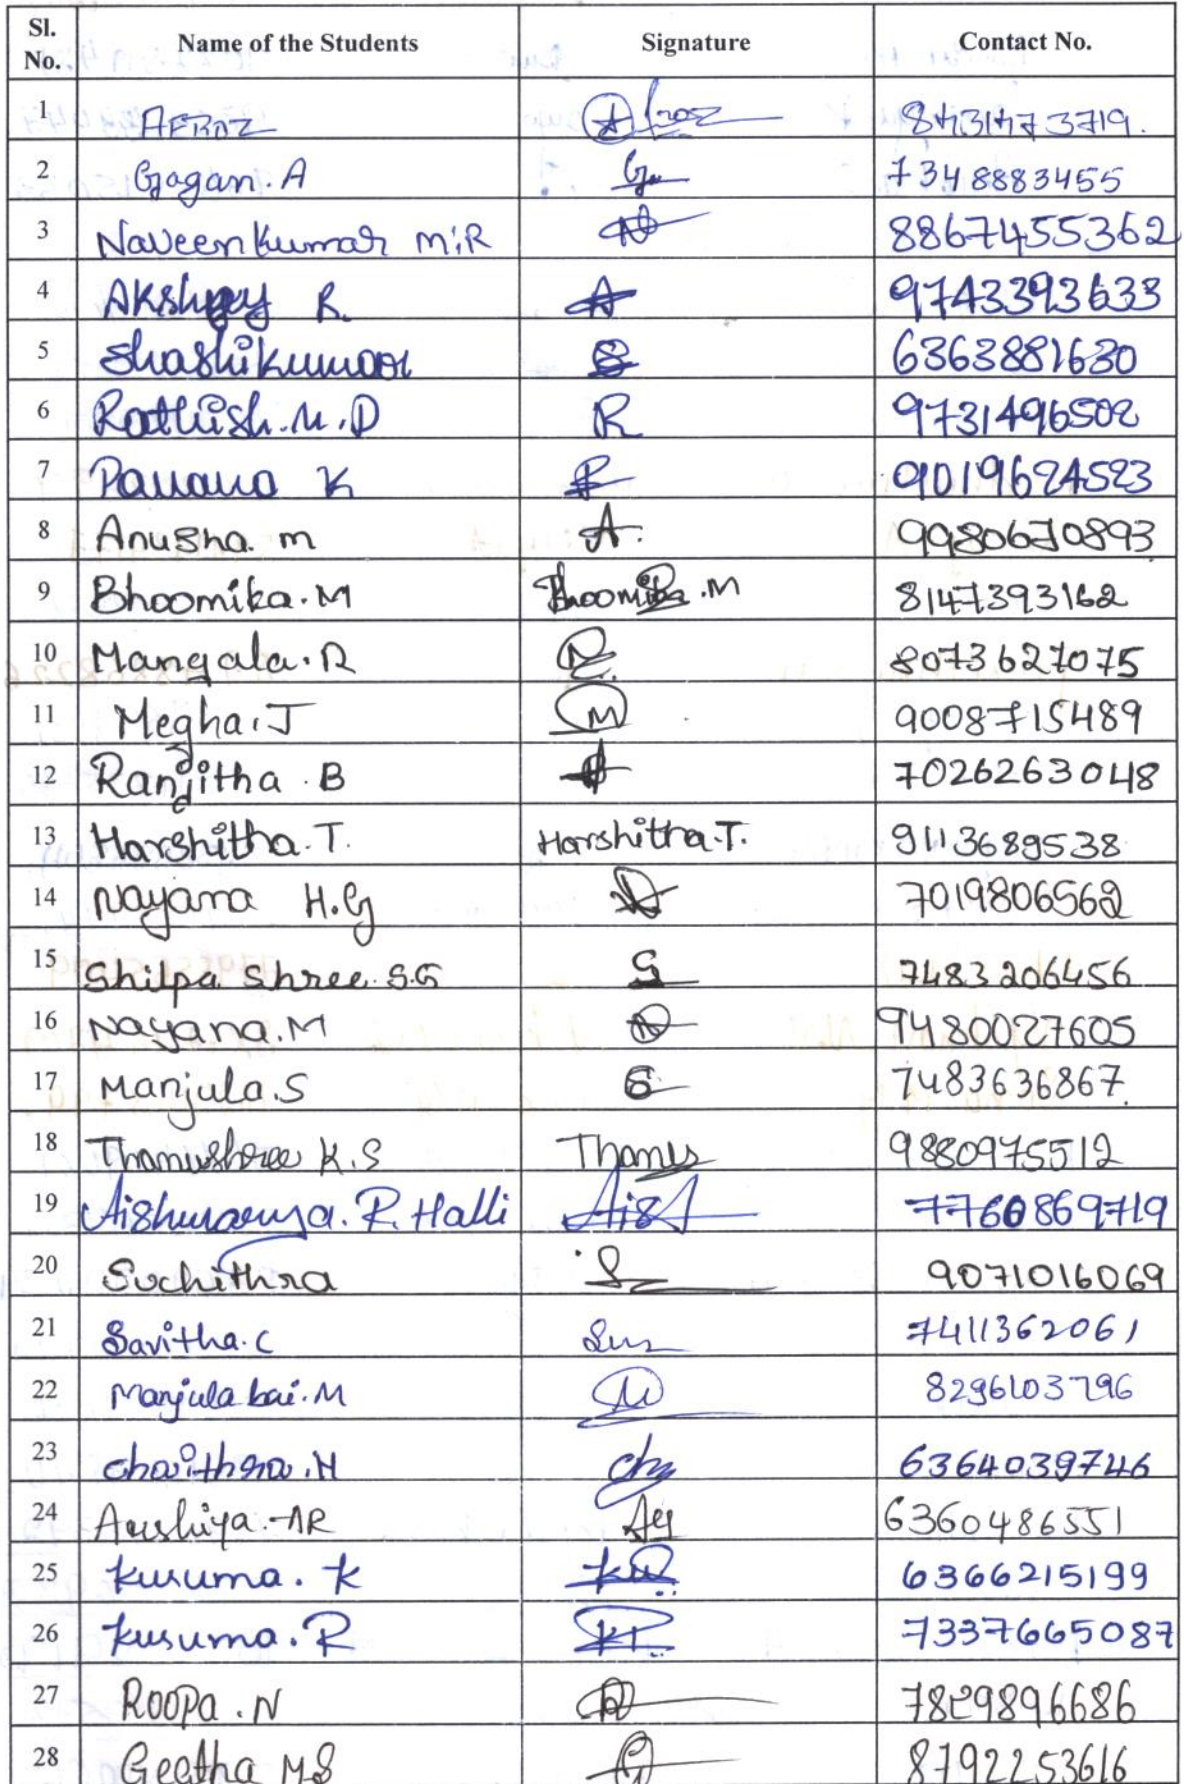 Sl. No. Name of the Students Signature Contact No.
1 AFROZ Afroz 8431473719.
2 Gagan. A 7348883455
3 Naveen Kumar M.R 8867455362
4 Akshay R. A 9743393633
5 Shashikumar S 6363881630
6 Rathish. M. D R 9731496502
7 Pavana K P 9019624523
8 Anusha. m A. 9980670893
9 Bhoomika. M Bhoomika .M 8147393162
10 Mangala. R 8073627075
11 Megha. J M 9008715489
12 Ranjitha . B 7026263048
13 Harshitha. T. Harshitha. T. 9113689538
14 Nayana H.G 7019806562
15 Shilpa shree. S.G S 7483206456
16 Nayana. M N 9480027605
17 Manjula. S S 7483636867.
18 Thanushree K. S Thanus 9880975512
19 Aishwarya. R. Halli Aish 7760869719
20 Suchithra S 9071016069
21 Savitha. C 7411362061
22 Manjula bai. M M 8296103796
23 Chaithra. N 6364039746
24 6360486551
25 Kusuma. K 6366215199
26 Kusuma. R 7337665087
27 Roopa . N R 7829896686
28 Geetha M S G 8792253616